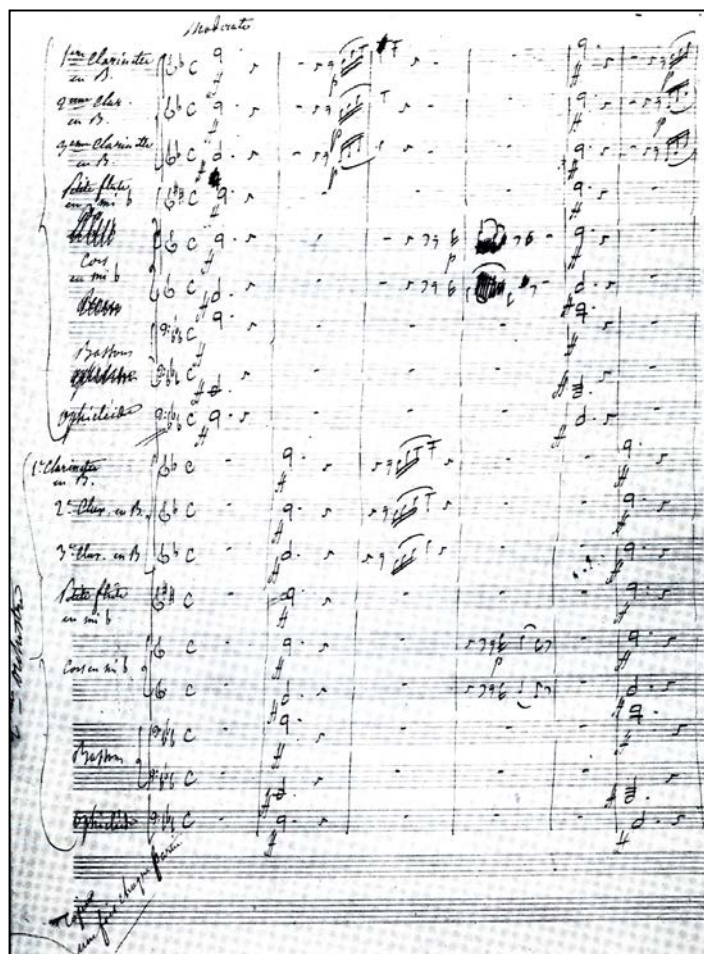 Moderato
1ere Clarinettes
en B.
2eme Clar.
en B.
3eme Clarinettes
en B.
Petite flute
en mi b
Cors
en mi b
Bassons
ophicleide
1e Clarinettes
en B.
2e Clar. en B.
3e Clar. en B
Petite flute
en mi b
Cors en mi b
Bassons
Ophicleide
Orchestre
copier
une fois chaque partie